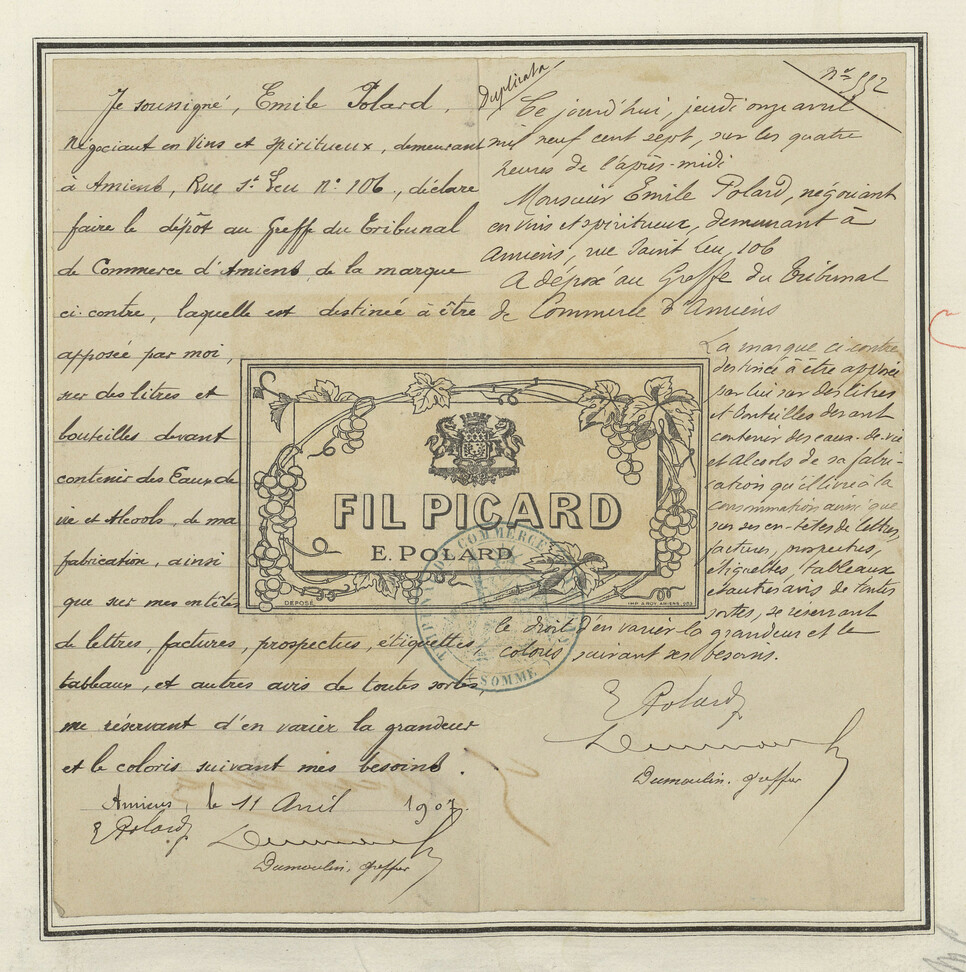 Je sousigné, Emile Polard,
Négociant en Vins et spiritueux, demeurant
à Amiens, Rue St Leu n° 106, déclare
faire le dépôt au Greffe du Tribunal
de Commerce d'Amiens de la marque
ci-contre, laquelle est destinée à être
apposée par moi,
sur des litres et
bouteilles devant
contenir des Eaux de
vie et Alcools, de ma
fabrication, ainsi
que sur mes entêtes
de lettres, factures, prospectus, étiquettes,
tableaux, et autres avis de toutes sortes,
me réservant d'en varier la grandeur
et le coloris suivant mes besoins.
Amiens, le 11 Avril 1907.
E Polard
Dumoulin, greffier
Duplicata
N° 552
Ce jourd'hui, jeudi onze avril
mil neuf cent sept, sur les quatre
heures de l'après-midi
Monsieur Emile Polard, négociant
en vins et spiritueux, demeurant à
Amiens, rue Saint Leu, 106
A déposé au Greffe du Tribunal
de Commerce d'Amiens
La marque ci contre
destinée à être apposée
par lui sur des litres
et bouteilles devant
contenir des eaux-de-vie
et alcools de sa fabri-
cation qu'il livre à la
consommation ainsi que
sur ses en-têtes de lettres,
factures, prospectus,
étiquettes, tableaux
et autres avis de toutes
sortes, se réservant
le droit d'en varier la grandeur et le
coloris suivant ses besoins.
E Polard
Dumoulin, greffier
FIL PICARD
E. POLARD
DEPOSÉ
IMP. A. ROY. AMIENS
COMMERCE
SOMME